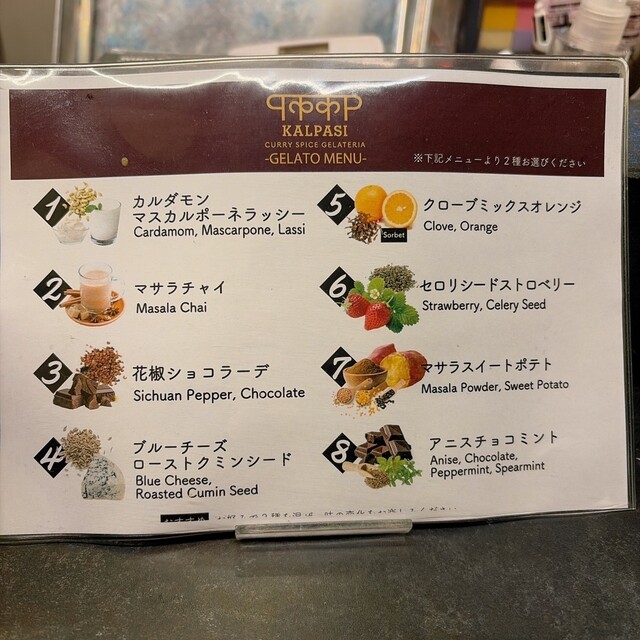 KALPASI
CURRY SPICE GELATERIA
-GELATO MENU-
※下記メニューより2種お選びください
1
カルダモン
マスカルポーネラッシー
Cardamom, Mascarpone, Lassi
2
マサラチャイ
Masala Chai
3
花椒ショコラーデ
Sichuan Pepper, Chocolate
4
ブルーチーズ
ローストクミンシード
Blue Cheese,
Roasted Cumin Seed
5
Sorbet
クローブミックスオレンジ
Clove, Orange
6
セロリシードストロベリー
Strawberry, Celery Seed
7
マサラスイートポテト
Masala Powder, Sweet Potato
8
アニスチョコミント
Anise, Chocolate,
Peppermint, Spearmint